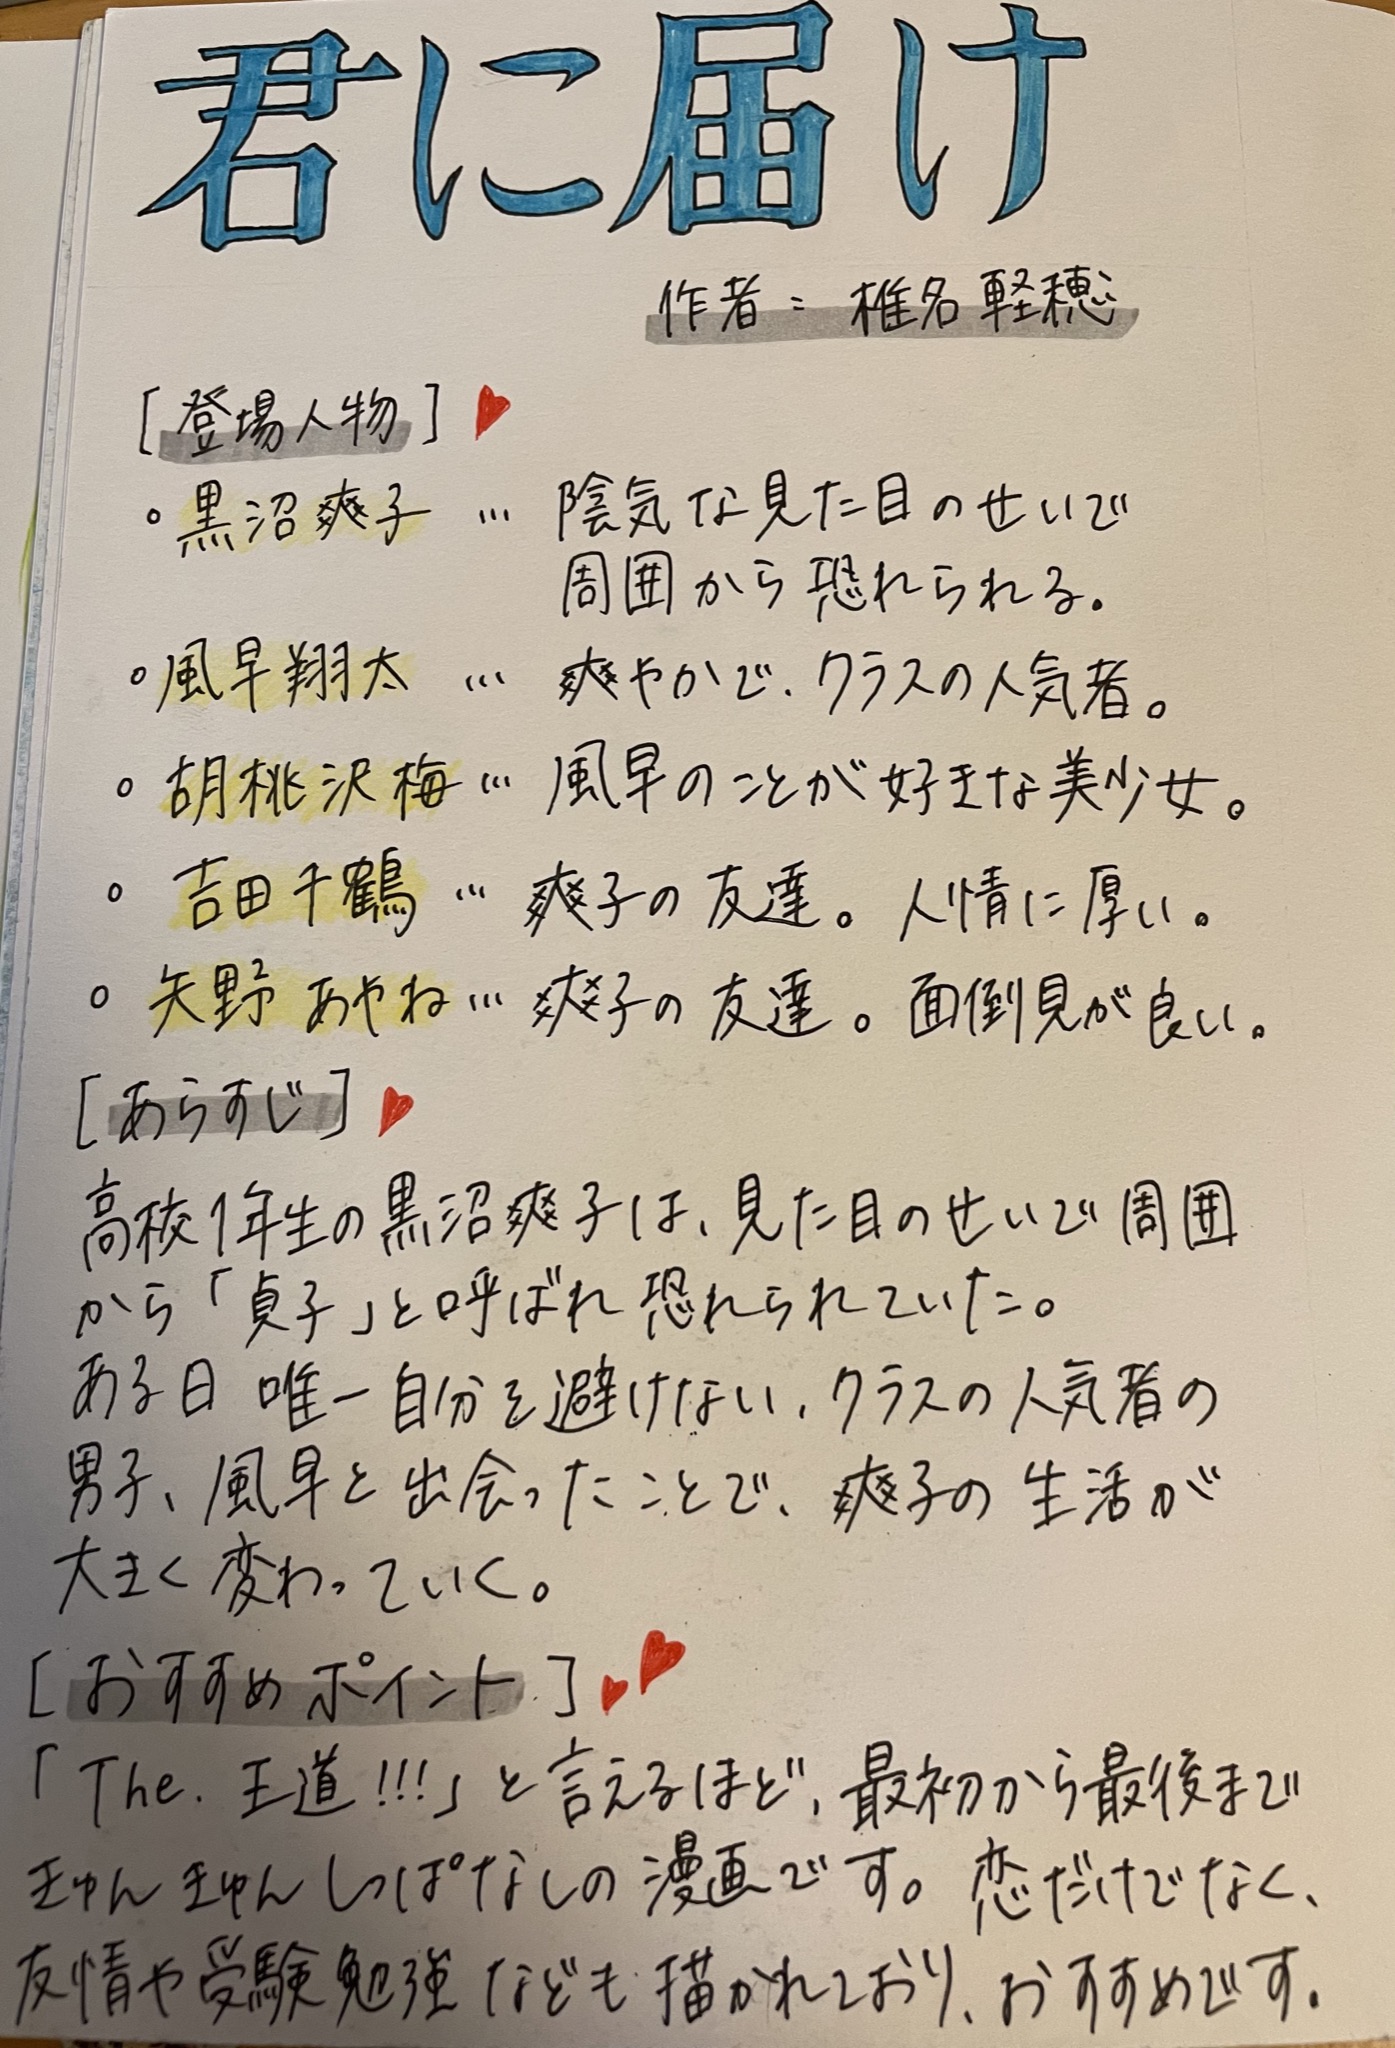 君に届け
作者：椎名軽穂
[登場人物]
・黒沼爽子 … 陰気な見た目のせいで
周囲から恐れられる。
・風早翔太 … 爽やかで、クラスの人気者。
・胡桃沢梅 … 風早のことが好きな美少女。
・吉田千鶴 … 爽子の友達。人情に厚い。
・矢野あやね … 爽子の友達。面倒見が良い。
[あらすじ]
高校1年生の黒沼爽子は、見た目のせいで周囲
から「貞子」と呼ばれ恐れられていた。
ある日 唯一自分を避けない、クラスの人気者の
男子、風早と出会ったことで、爽子の生活が
大きく変わっていく。
[おすすめポイント]
「The. 王道!!!」と言えるほど、最初から最後まで
きゅんきゅんしっぱなしの漫画です。恋だけでなく、
友情や受験勉強なども描かれており、おすすめです。